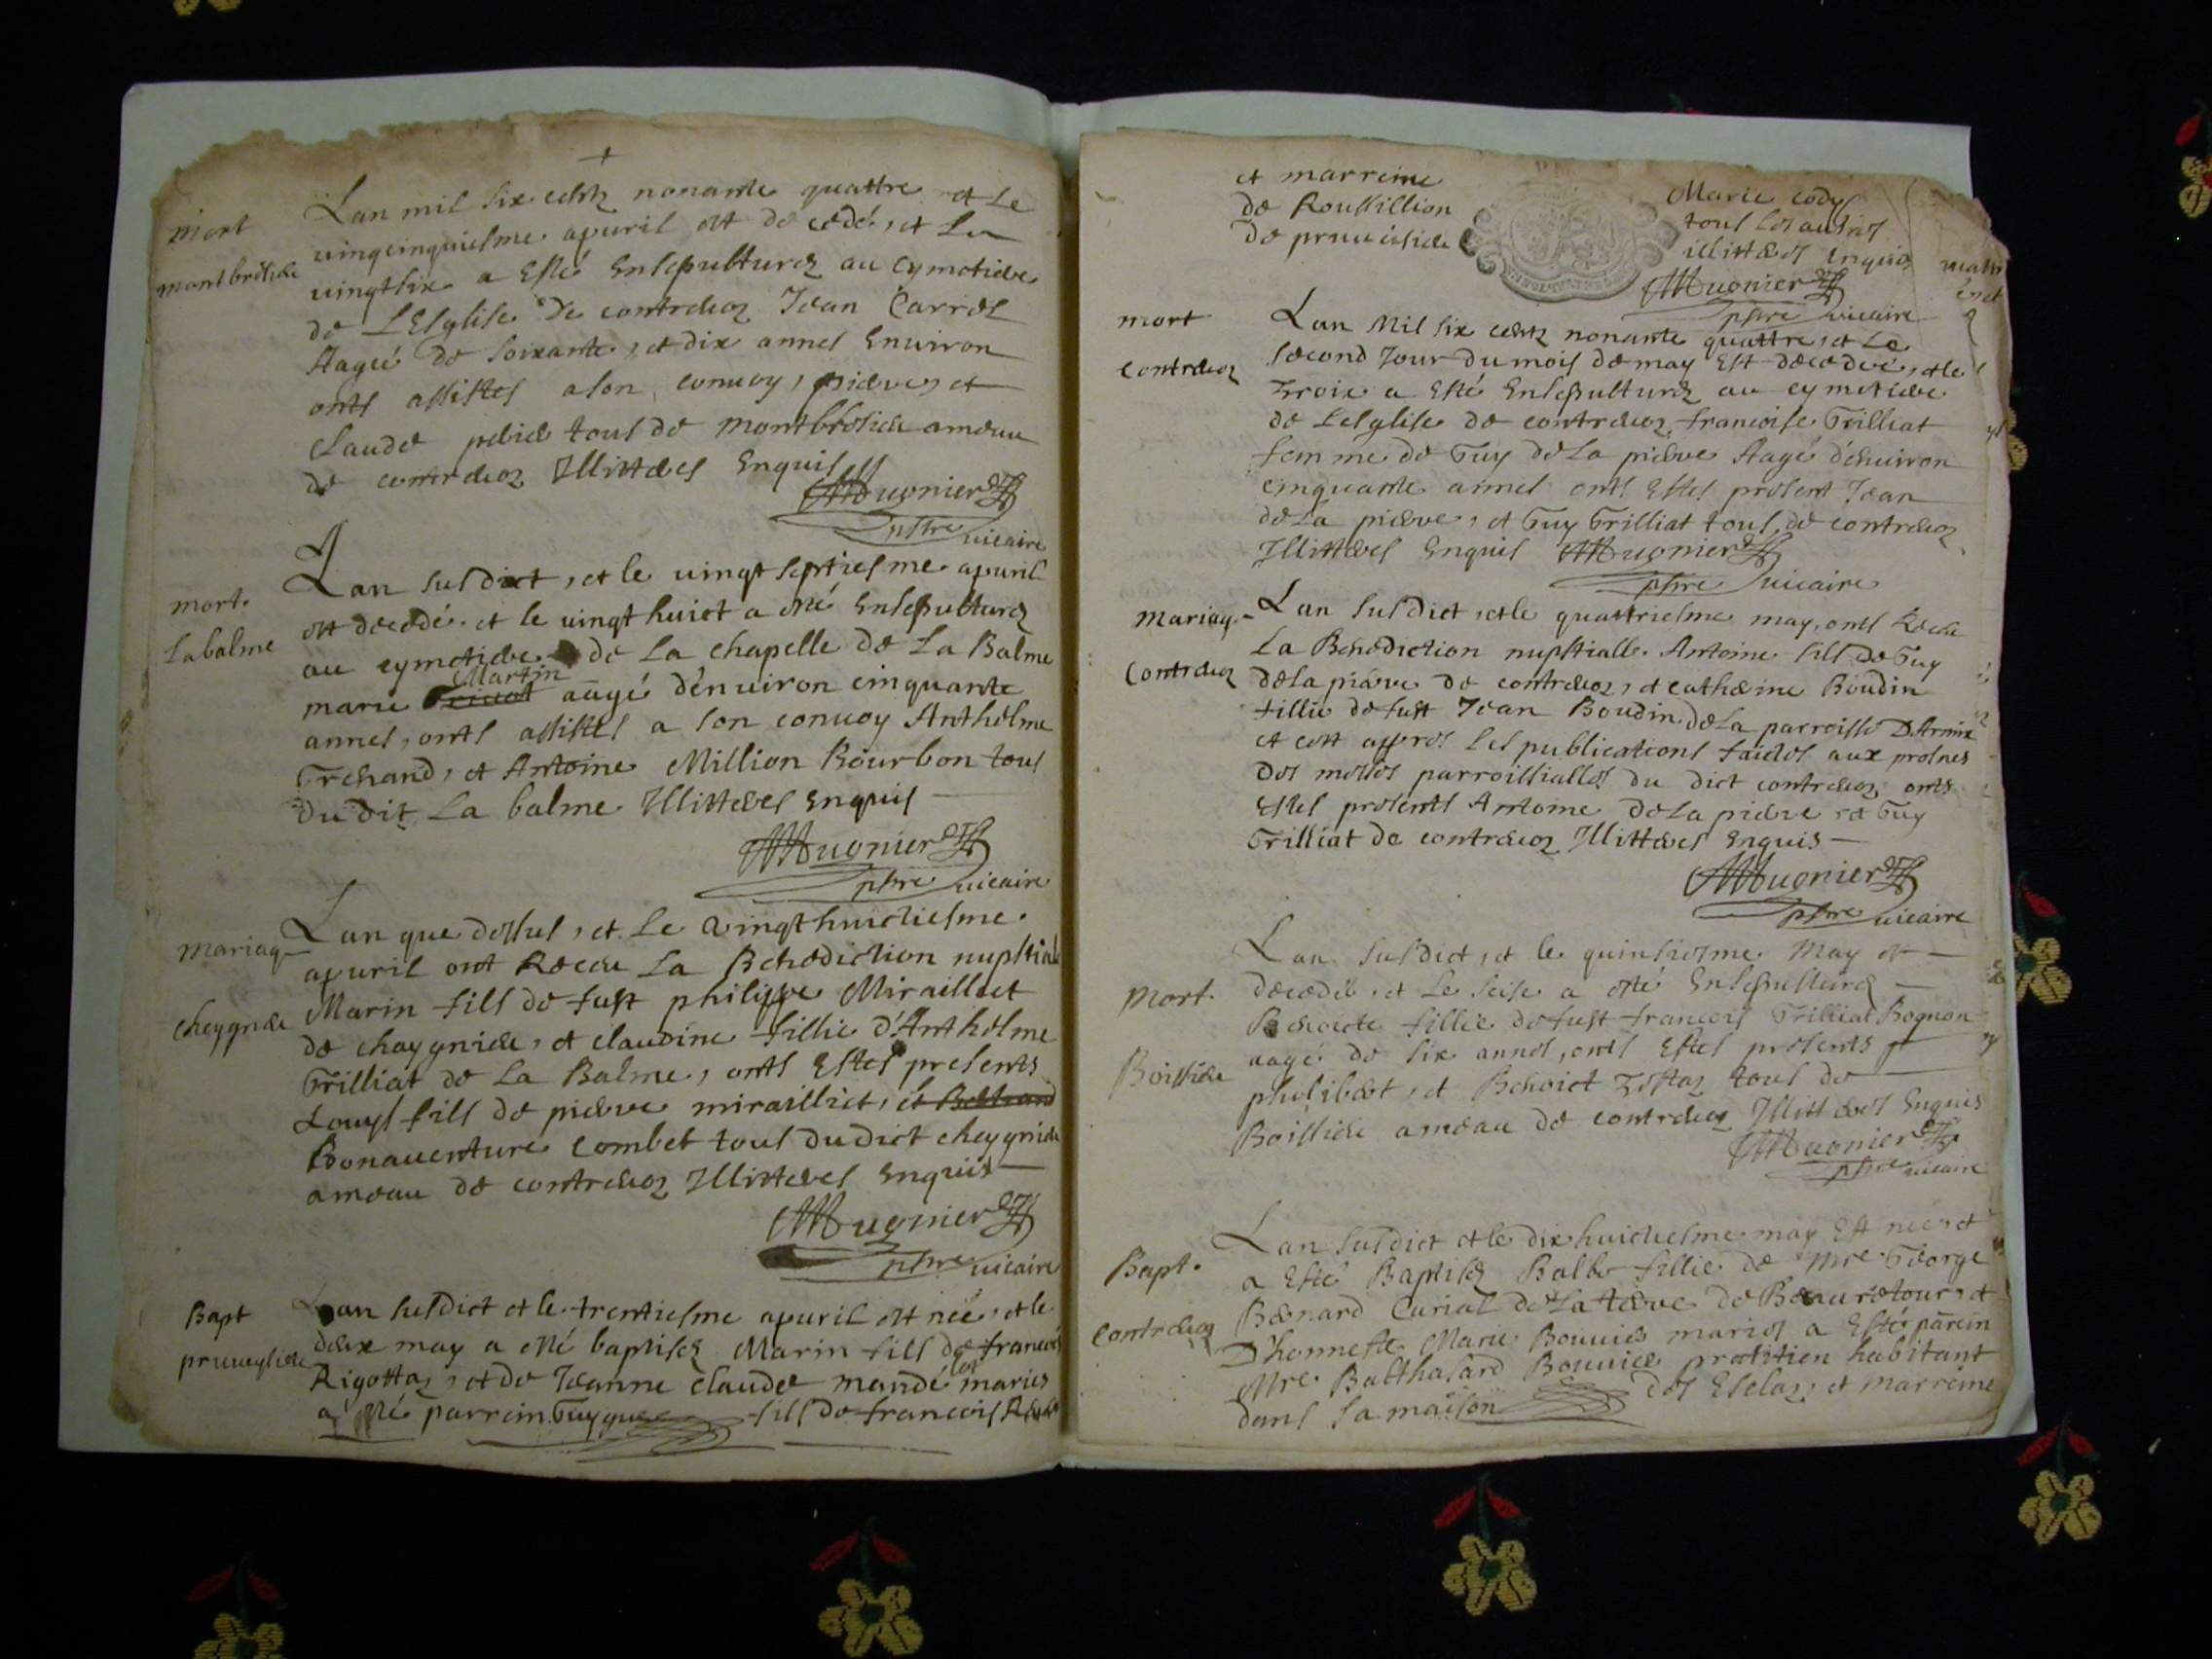 mort
montbréside
Lan mil six cents nonante quattre et Le
vingcinquiesme apuril est decedé, et Le
vingtsix a esté Ensepulturez au Cymetiere
de LEsglise de contrevoz Jean Carrel
Aagé de soixante, et dix annes Environ
onts assistes a son convoy, pierre, et
Claude tous de montbréside ameau
de contrevoz Illitteres Enquis
MHugonier
pstre vicaire
mort.
Labalme
Lan susdict, et le vingt septiesme apuril
est decedé. et le vingthuict a esté Ensepulturez
au cymetiere de La chapelle de La Balme
Martin
marie aagé dénviron cinquante
annes, onts assistes a son convoy Anthelme
Trehand, et Antoine Million Bourbon tous
du dit La balme Illitteres Enquis
MHugonier
pstre vicaire
mariag
cheygnieu
Lan que dessus, et Le vingthuictiesme
apuril ont Receu La Benediction nupstial
Marin fils de fust philippe Mirailliet
de cheygnieu, et claudine fillie d'Anthelme
Trilliat de La Balme, onts Estes presents
Louys fils de pierre mirailliet, et
Bonaventure Combet tous dudict cheygnieu
ameau de contrevoz Illitteres Enquis
MHugonier
pstre vicaire
Bapt
pruveylieu
Lan susdict et le trentiesme apuril est née, et le
deux may a esté baptisez Marin fils de francois
Rigottaz, et de Jeanne Claude mandé maries
a esté parrein Guy fils de francois
et marreine
de Roussillion
de
Marie
tous les autres
illitteres Enquis
MHugonier
pstre vicaire
mort
Contrevoz
Lan Mil six cents nonante quattre, et Le
second Jour du mois de may Est decedeé, et le
troix a Esté Ensepulturez au cymetiere
de Lesglise de contrevoz, francoise Trilliat
femme de Guy de La pierre Aagé dénviron
cinquante annes onts Estes present Jean
de La pierre, et Guy Trilliat tous de contrevoz
Illitteres Enquis MHugonier
pstre vicaire
Mariag
Contrevoz
Lan susdict, et le quattriesme may, onts Receu
La Benediction nupstialle. Antoine fils de Guy
de la pierre de contrevoz, et catherine Boudin
fillie de fust Jean Boudin de La parroisse D'Armix
et cest appres Les publications faictes aux prosnes
des messes parroissialles du dict contrevoz onts
Estes presents Antoine de La pierre et Guy
Trilliat de contrevoz Illitteres Enquis
MHugonier
pstre vicaire
Mort.
Boissieu
Lan susdict, et le quinsiesme May est
decedée, et Le seise a esté Ensepulturez
Benoite fillie de fust francois Trilliat Bognon
aagé de six annes, onts Estes presents
philibert, et Benoict tous de
Boissieu ameau de contrevoz Illitteres Enquis
MHugonier
pstre vicaire
Bapt.
Contrevoz
Lan susdict et le dix huictiesme may Est neé, et
a Esté Baptisez Balbe fillie de Mre George
Bernard Curial de La terre de Beauretour, et
D'honneste Marie Bouvier maries a Esté parein
Mre. Balthasard Bouvier pratitien habitant
dans sa maison des Esclaz, et marreine